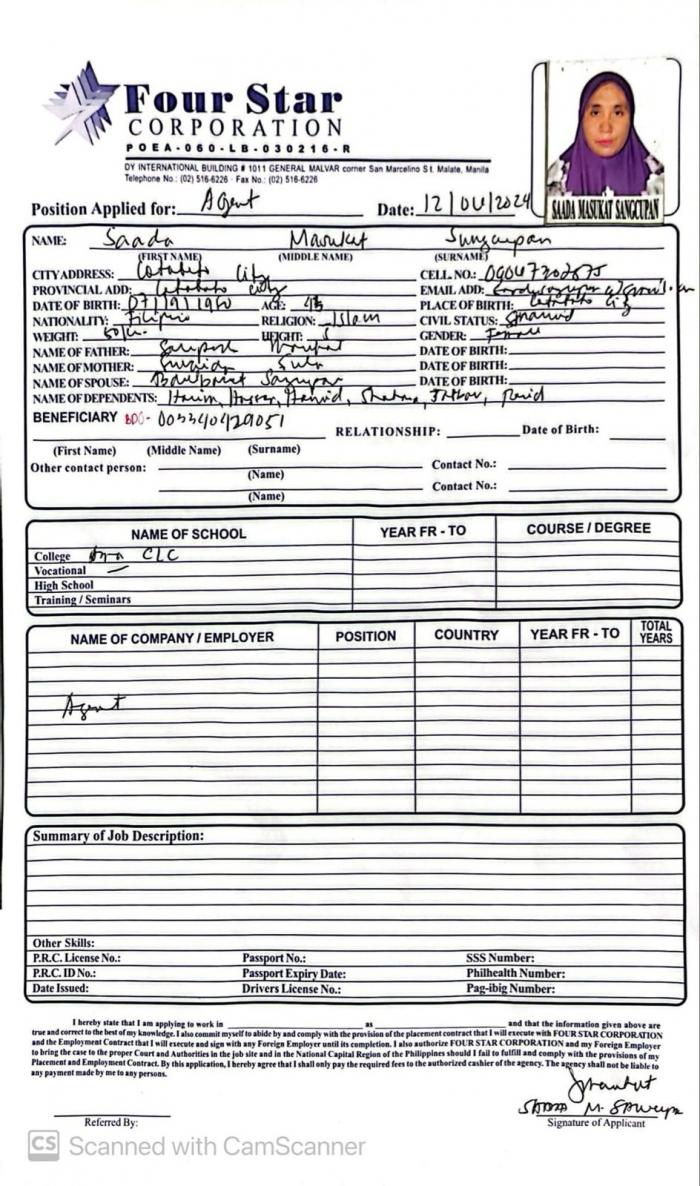 Four Star
CORPORATION
POEA-060-LB-030216-R
DY INTERNATIONAL BUILDING # 1011 GENERAL MALVAR corner San Marcelino St. Malate, Manila
Telephone No.: (02) 516-6226 · Fax No.: (02) 516-6226
SAADA MASUKAT SANGCUPAN
Position Applied for: Agent Date: 12/04/2024
NAME: Saada Masukat
(FIRST NAME) (MIDDLE NAME) (SURNAME)
CITY ADDRESS: Cotabato City CELL NO.:
PROVINCIAL ADD: Cotabato City EMAIL ADD:
DATE OF BIRTH: AGE: PLACE OF BIRTH: Cotabato City
NATIONALITY: Filipino RELIGION: Islam CIVIL STATUS:
WEIGHT: HEIGHT: 5 GENDER: Female
NAME OF FATHER: DATE OF BIRTH:
NAME OF MOTHER: DATE OF BIRTH:
NAME OF SPOUSE: DATE OF BIRTH:
NAME OF DEPENDENTS:
BENEFICIARY BDO- 005340429051
RELATIONSHIP: Date of Birth:
(First Name) (Middle Name) (Surname)
Other contact person: Contact No.:
(Name)
Contact No.:
(Name)
NAME OF SCHOOL YEAR FR - TO COURSE / DEGREE
College CLC
Vocational
High School
Training / Seminars
NAME OF COMPANY / EMPLOYER POSITION COUNTRY YEAR FR - TO TOTAL YEARS
Agent
Summary of Job Description:
Other Skills:
P.R.C. License No.: Passport No.: SSS Number:
P.R.C. ID No.: Passport Expiry Date: Philhealth Number:
Date Issued: Drivers License No.: Pag-ibig Number:
I hereby state that I am applying to work in as and that the information given above are
true and correct to the best of my knowledge. I also commit myself to abide by and comply with the provision of the placement contract that I will execute with FOUR STAR CORPORATION
and the Employment Contract that I will execute and sign with any Foreign Employer until its completion. I also authorize FOUR STAR CORPORATION and my Foreign Employer
to bring the case to the proper Court and Authorities in the job site and in the National Capital Region of the Philippines should I fail to fulfill and comply with the provisions of my
Placement and Employment Contract. By this application, I hereby agree that I shall only pay the required fees to the authorized cashier of the agency. The agency shall not be liable to
any payment made by me to any persons.
Referred By: Signature of Applicant
CS Scanned with CamScanner